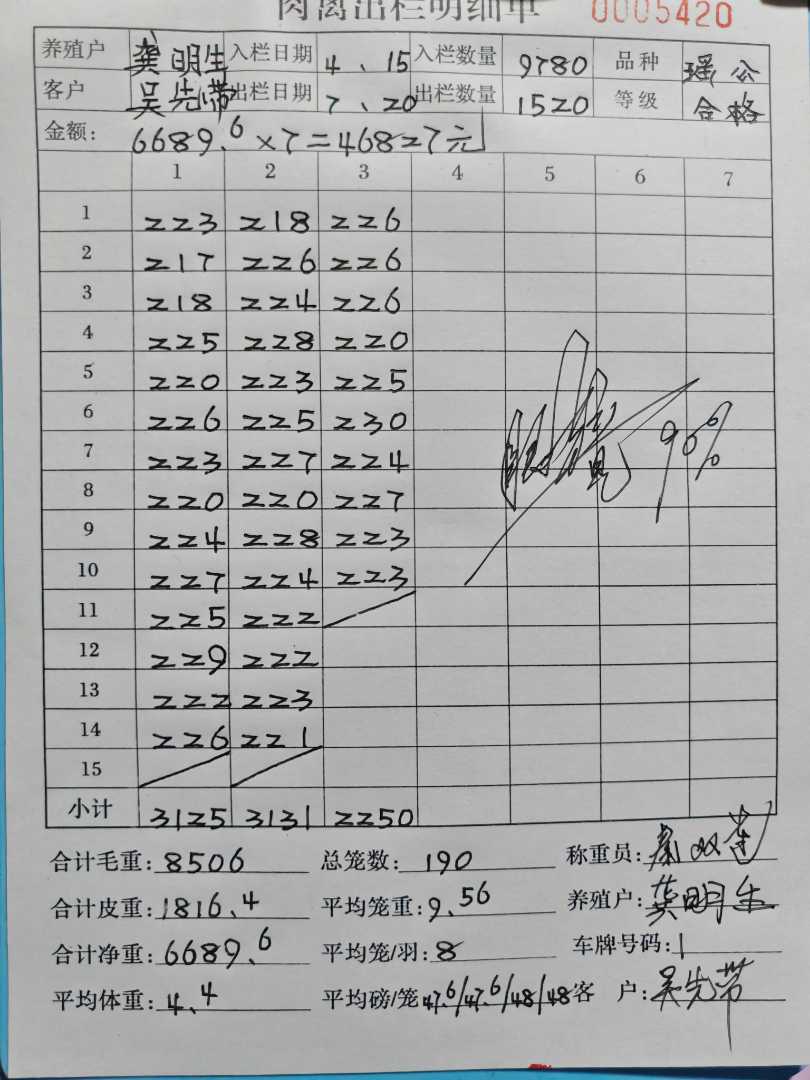 肉禽出栏明细单 0005420
养殖户 龚明生 入栏日期 4、15 入栏数量 9780 品种 瑶公
客户 吴先带 出栏日期 7、20 出栏数量 1520 等级 合格
金额: 6689.6×7=46827元
1 2 3 4 5 6 7
1 223 218 226
2 217 226 226
3 218 224 226
4 225 228 220
5 220 223 225
6 226 225 230
7 223 227 224
8 220 220 227
9 224 228 223
10 227 224 223
11 225 222
12 229 222
13 222 223
14 226 221
15
90%
小计 3125 3131 2250
合计毛重: 8506 总笼数: 190 称重员:
合计皮重: 1816.4 平均笼重: 9.56 养殖户: 龚明生
合计净重: 6689.6 平均笼/羽: 8 车牌号码: 1
平均体重: 4.4 平均磅/笼 47.6/47.6/48/48 客户: 吴先带